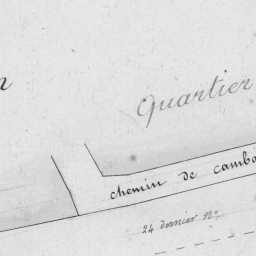 Quartier
chemin de cambo
24 dernier No